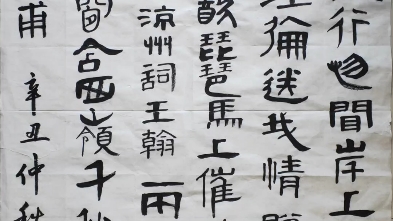 行忽聞岸上
倫送我情
飲琵琶馬上催
涼州詞王翰 兩
窗含西嶺千秋
甫 辛丑仲秋